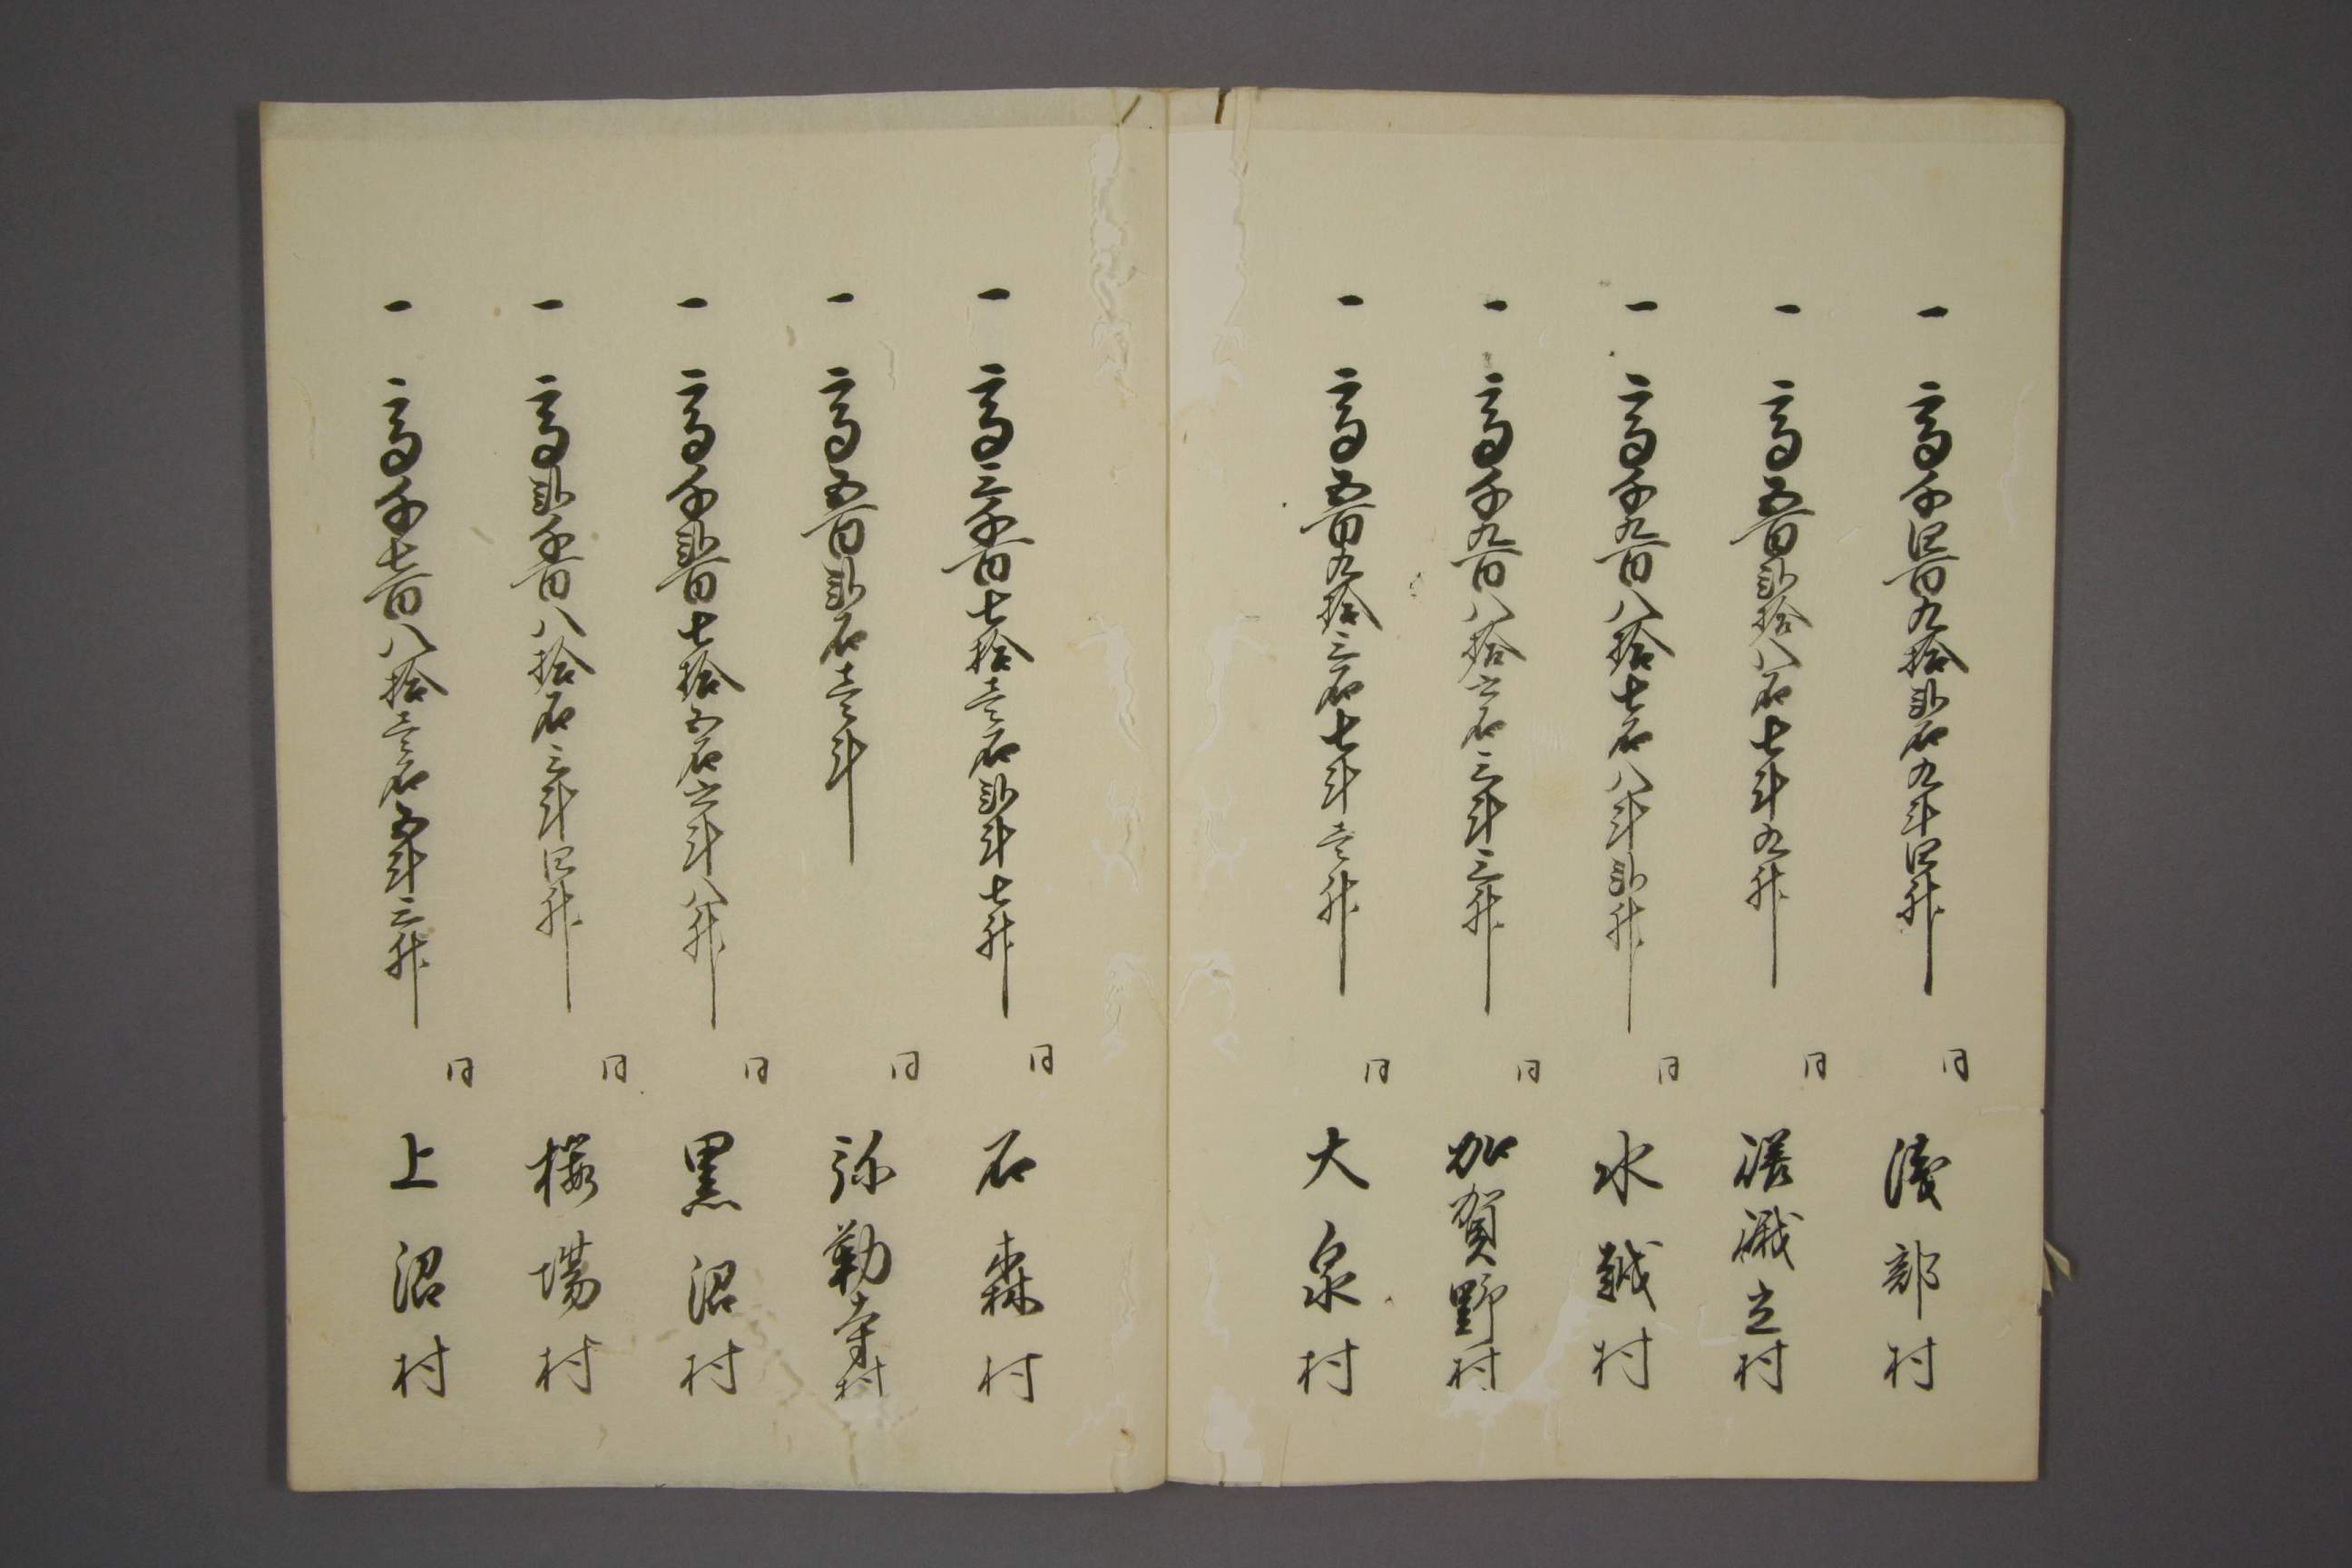 一高千四百九拾弐石九斗四升 同 浅部村
一高五百弐拾八石七斗九升 同 嵯峨立村
一高千九百八拾七石八斗弐升 同 水越村
一高千九百八拾六石三斗三升 同 加賀野村
一高五百九拾三石七斗壱升 同 大泉村
一高三千百七拾壱石弐斗七升 同 石森村
一高五百弐石壱斗 同 弥勒寺村
一高千弐百七拾五石六斗八升 同 黒沼村
一高弐千百八拾石三斗四升 同 桜場村
一高千七百八拾壱石五斗三升 同 上沼村